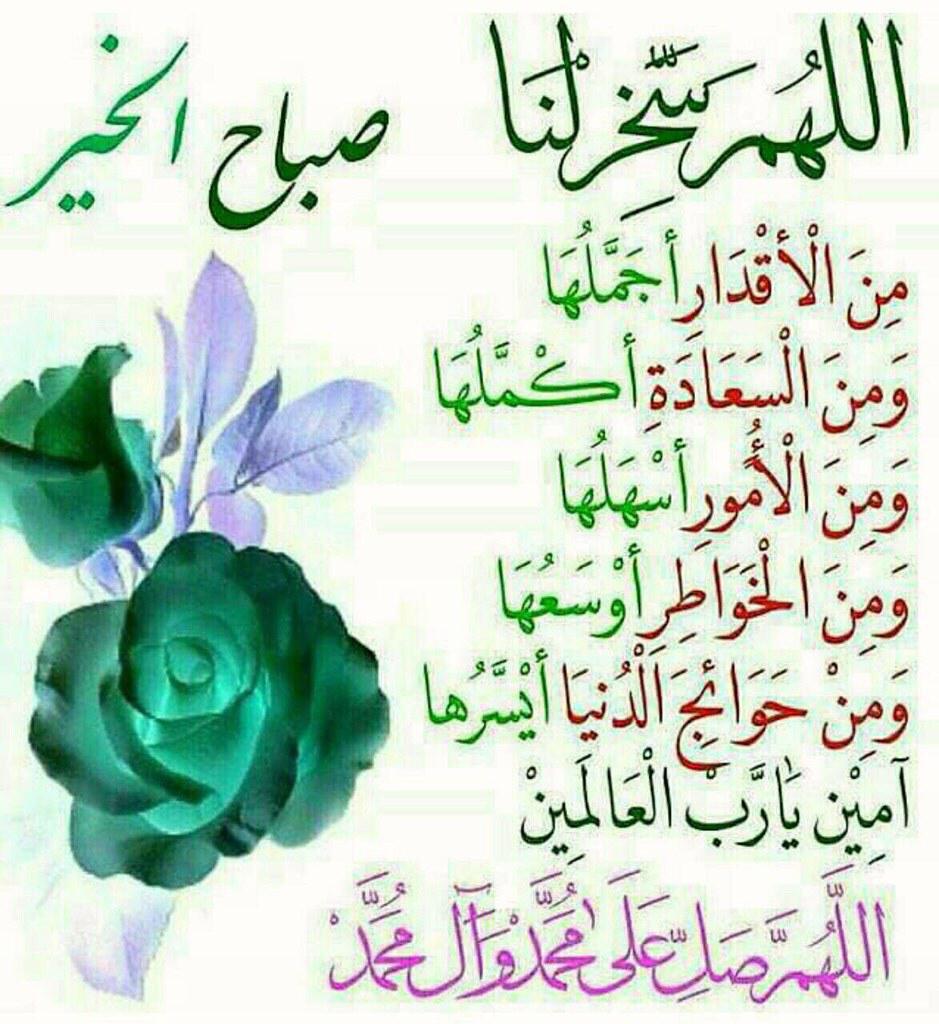 اللهم سخر لنا
صباح الخير
مِنَ الْأقْدَارِ أجَمَّلُهَا
وَمِنَ الْسَعَادَةِ أكْمَّلُهَا
وَمِنَ الْأُمُورِ أسْهَلُهَا
وَمِنَ الْخَوَاطِرِ أوْسَعُهَا
وَمِنْ حَوَائِجَ الْدُنيَا أيْسَّرُها
آمِيْن يَارَبَّ الْعَالَمِيْنْ
اللَّهُمَّ صَلِّ عَلَى مُحَمَّدْ وَآلِ مُحَمَّدْ